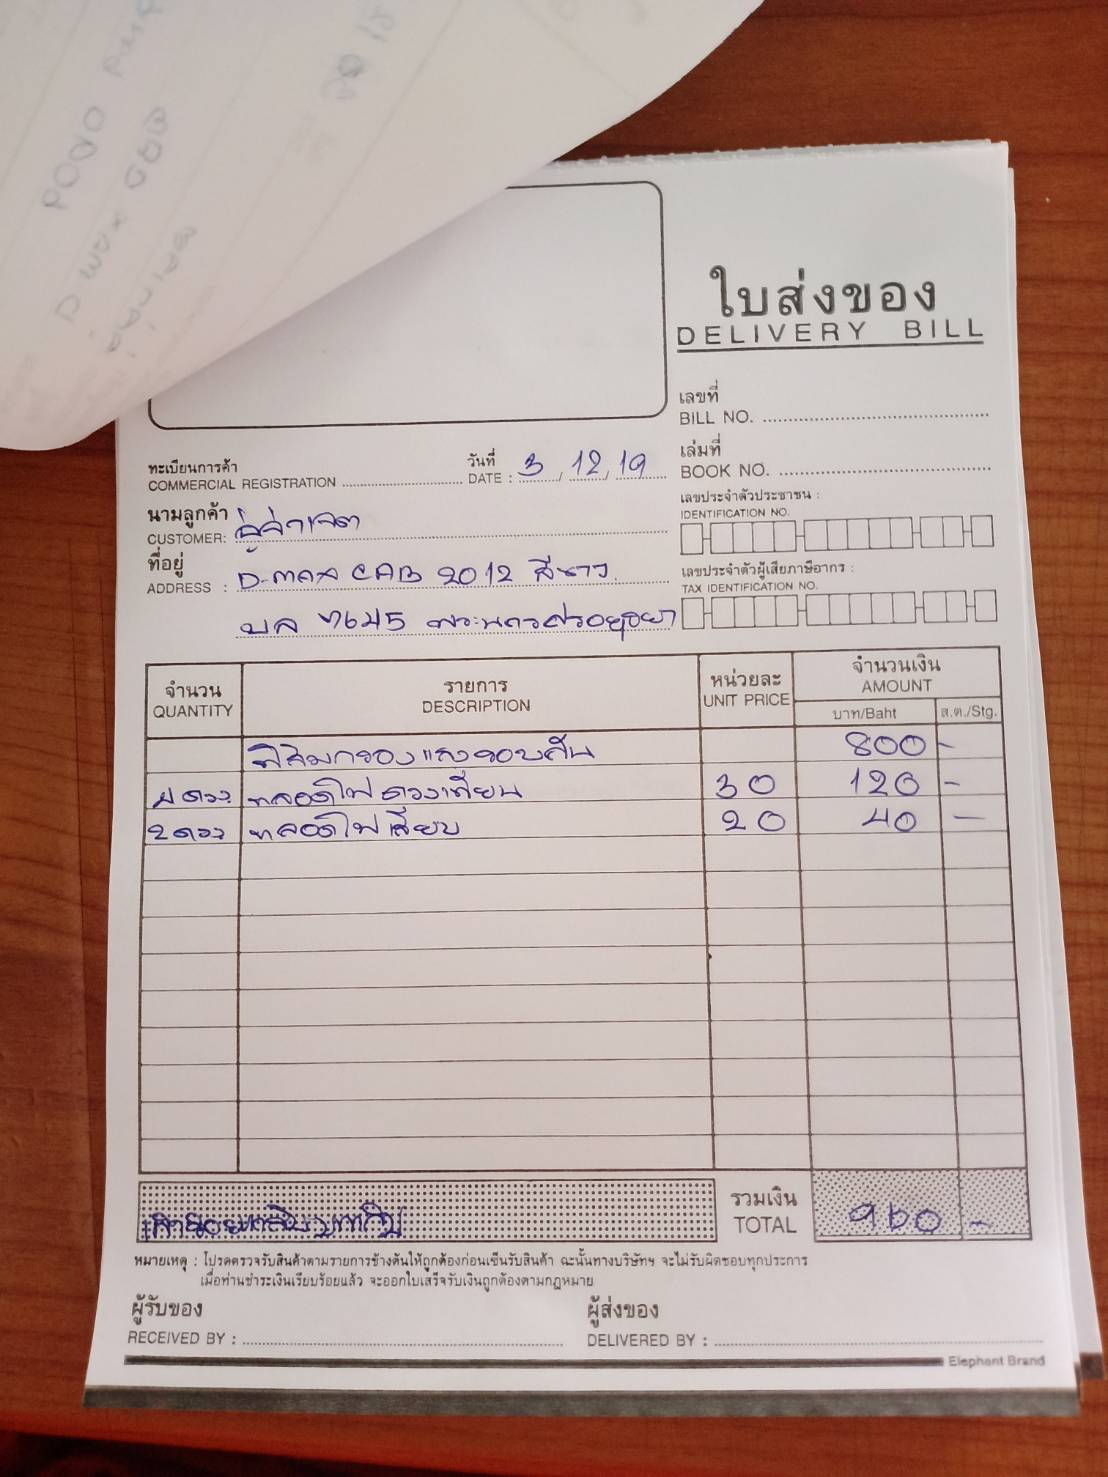 ใบส่งของ
DELIVERY BILL
เลขที่
BILL NO.
เล่มที่
BOOK NO.
ทะเบียนการค้า
COMMERCIAL REGISTRATION
วันที่
DATE : 3 / 12 / 19
เลขประจำตัวประชาชน :
IDENTIFICATION NO.
นามลูกค้า
CUSTOMER:
ที่อยู่
ADDRESS : D-max CAB 2012 สีขาว
บล 7645 พระนครศรีอยุธยา
เลขประจำตัวผู้เสียภาษีอากร :
TAX IDENTIFICATION NO.
จำนวน รายการ หน่วยละ จำนวนเงิน
QUANTITY DESCRIPTION UNIT PRICE AMOUNT
บาท/Baht ส.ต./Stg.
ฟิล์มกรองแสงรอบคัน 800 -
4 ดวง หลอดไฟดวงเทียน 30 120 -
2 ดวง หลอดไฟเสียบ 20 40 -
รวมเงิน
เก้าร้อยหกสิบบาท TOTAL 960 -
หมายเหตุ : โปรดตรวจรับสินค้าตามรายการข้างต้นให้ถูกต้องก่อนเซ็นรับสินค้า ฉะนั้นทางบริษัทฯ จะไม่รับผิดชอบทุกประการ
เมื่อท่านชำระเงินเรียบร้อยแล้ว จะออกใบเสร็จรับเงินถูกต้องตามกฎหมาย
ผู้รับของ ผู้ส่งของ
RECEIVED BY : DELIVERED BY :
Elephant Brand